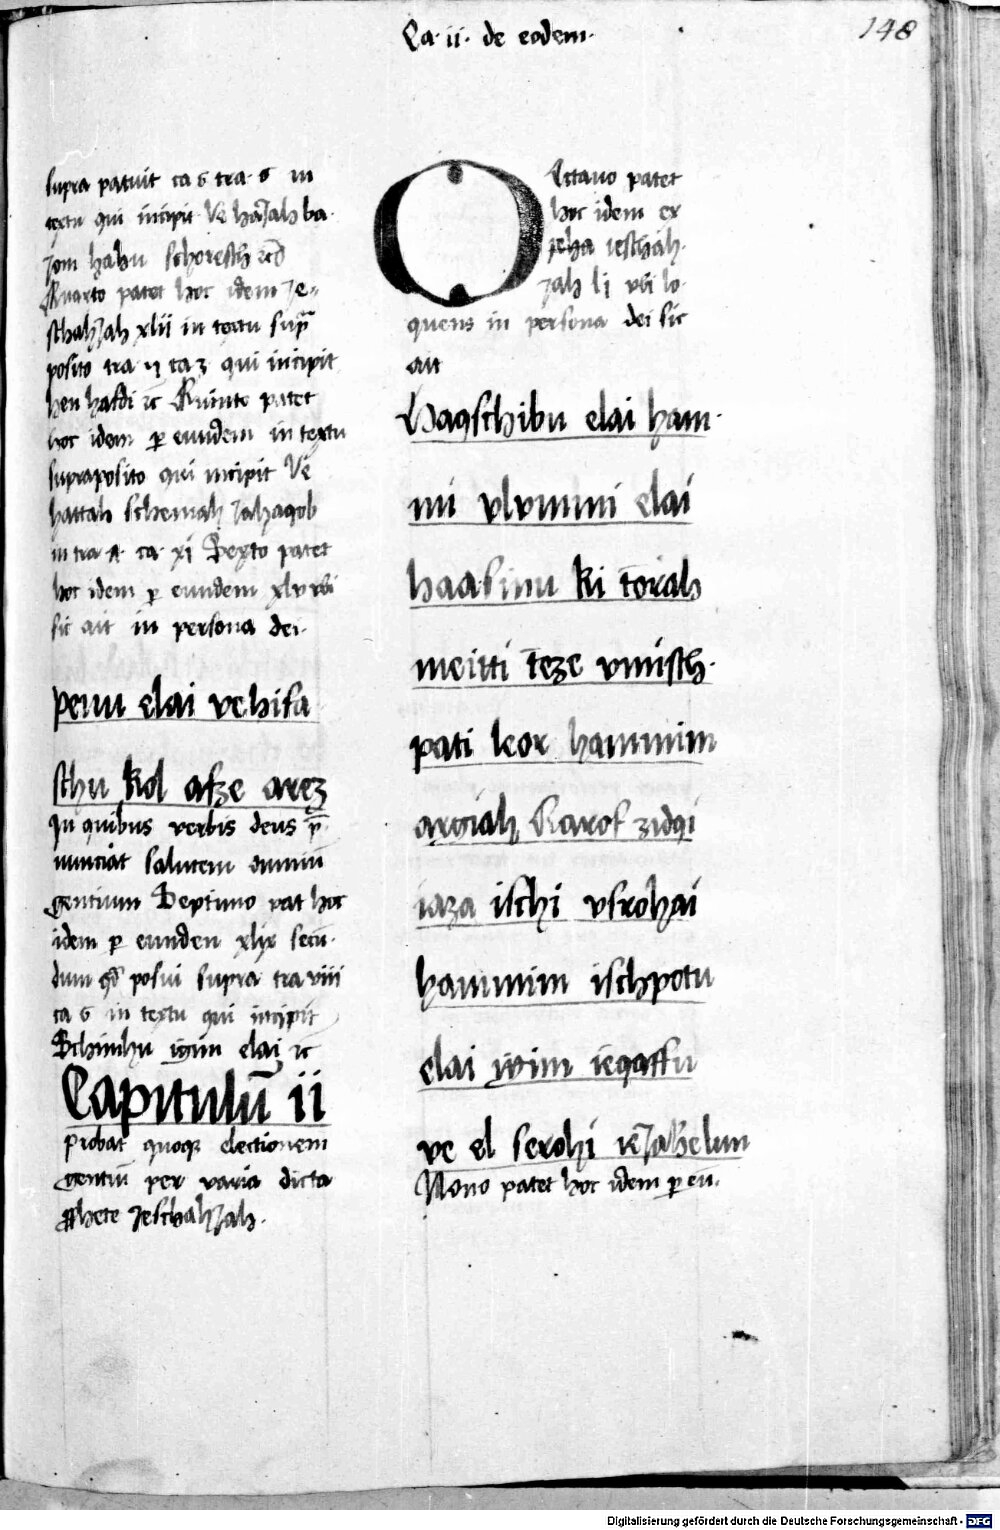 Ca · ii · de eodem ·
148
supra patuit ca 6 tra 6 in
textu qui incipit Ve haJah ba
Jom hahu schoresch etc
Quarto patet hoc idem Je=
schahJah xlii in textu sup
posito tra ij ca 3 qui incipit
hen hafdi etc Quinto patet
hoc idem p eundem in textu
supraposito qui incipit Ve
hattah schemah Jahaqob
in tra ca xi Sexto patet
hoc idem p eundem xlv vbi
sic ait in persona dei ·
penu elai vehifa
schu kol afze arez
In quibus verbis deus p
nunciat salutem omniū
gentium Septimo pat hoc
idem p eunden xlix secu
dum qd posui supra tra viii
ca 6 in textu qui incipit
Schimhu igim elai etc
Capitulū ii
Probat quoque electionem
gentiū per varia dicta
phete JeschahJah ·
OCctauo patet
hoc idem ex
ieschah
Jah li vbi lo
quens in persona dei sic
ait
Haqschibu elai ham
mi vlvmmi elai
haasinu ki torah
meitti teze vmisch
pati leor hammim
argiah Karof zidqi
iaza ischi vsrohai
hammim ischpotu
elai iyim ieqaffu
ve el serohi ieJahelun
Nono patet hoc idem p eū
Digitalisierung gefördert durch die Deutsche Forschungsgemeinschaft - DFG